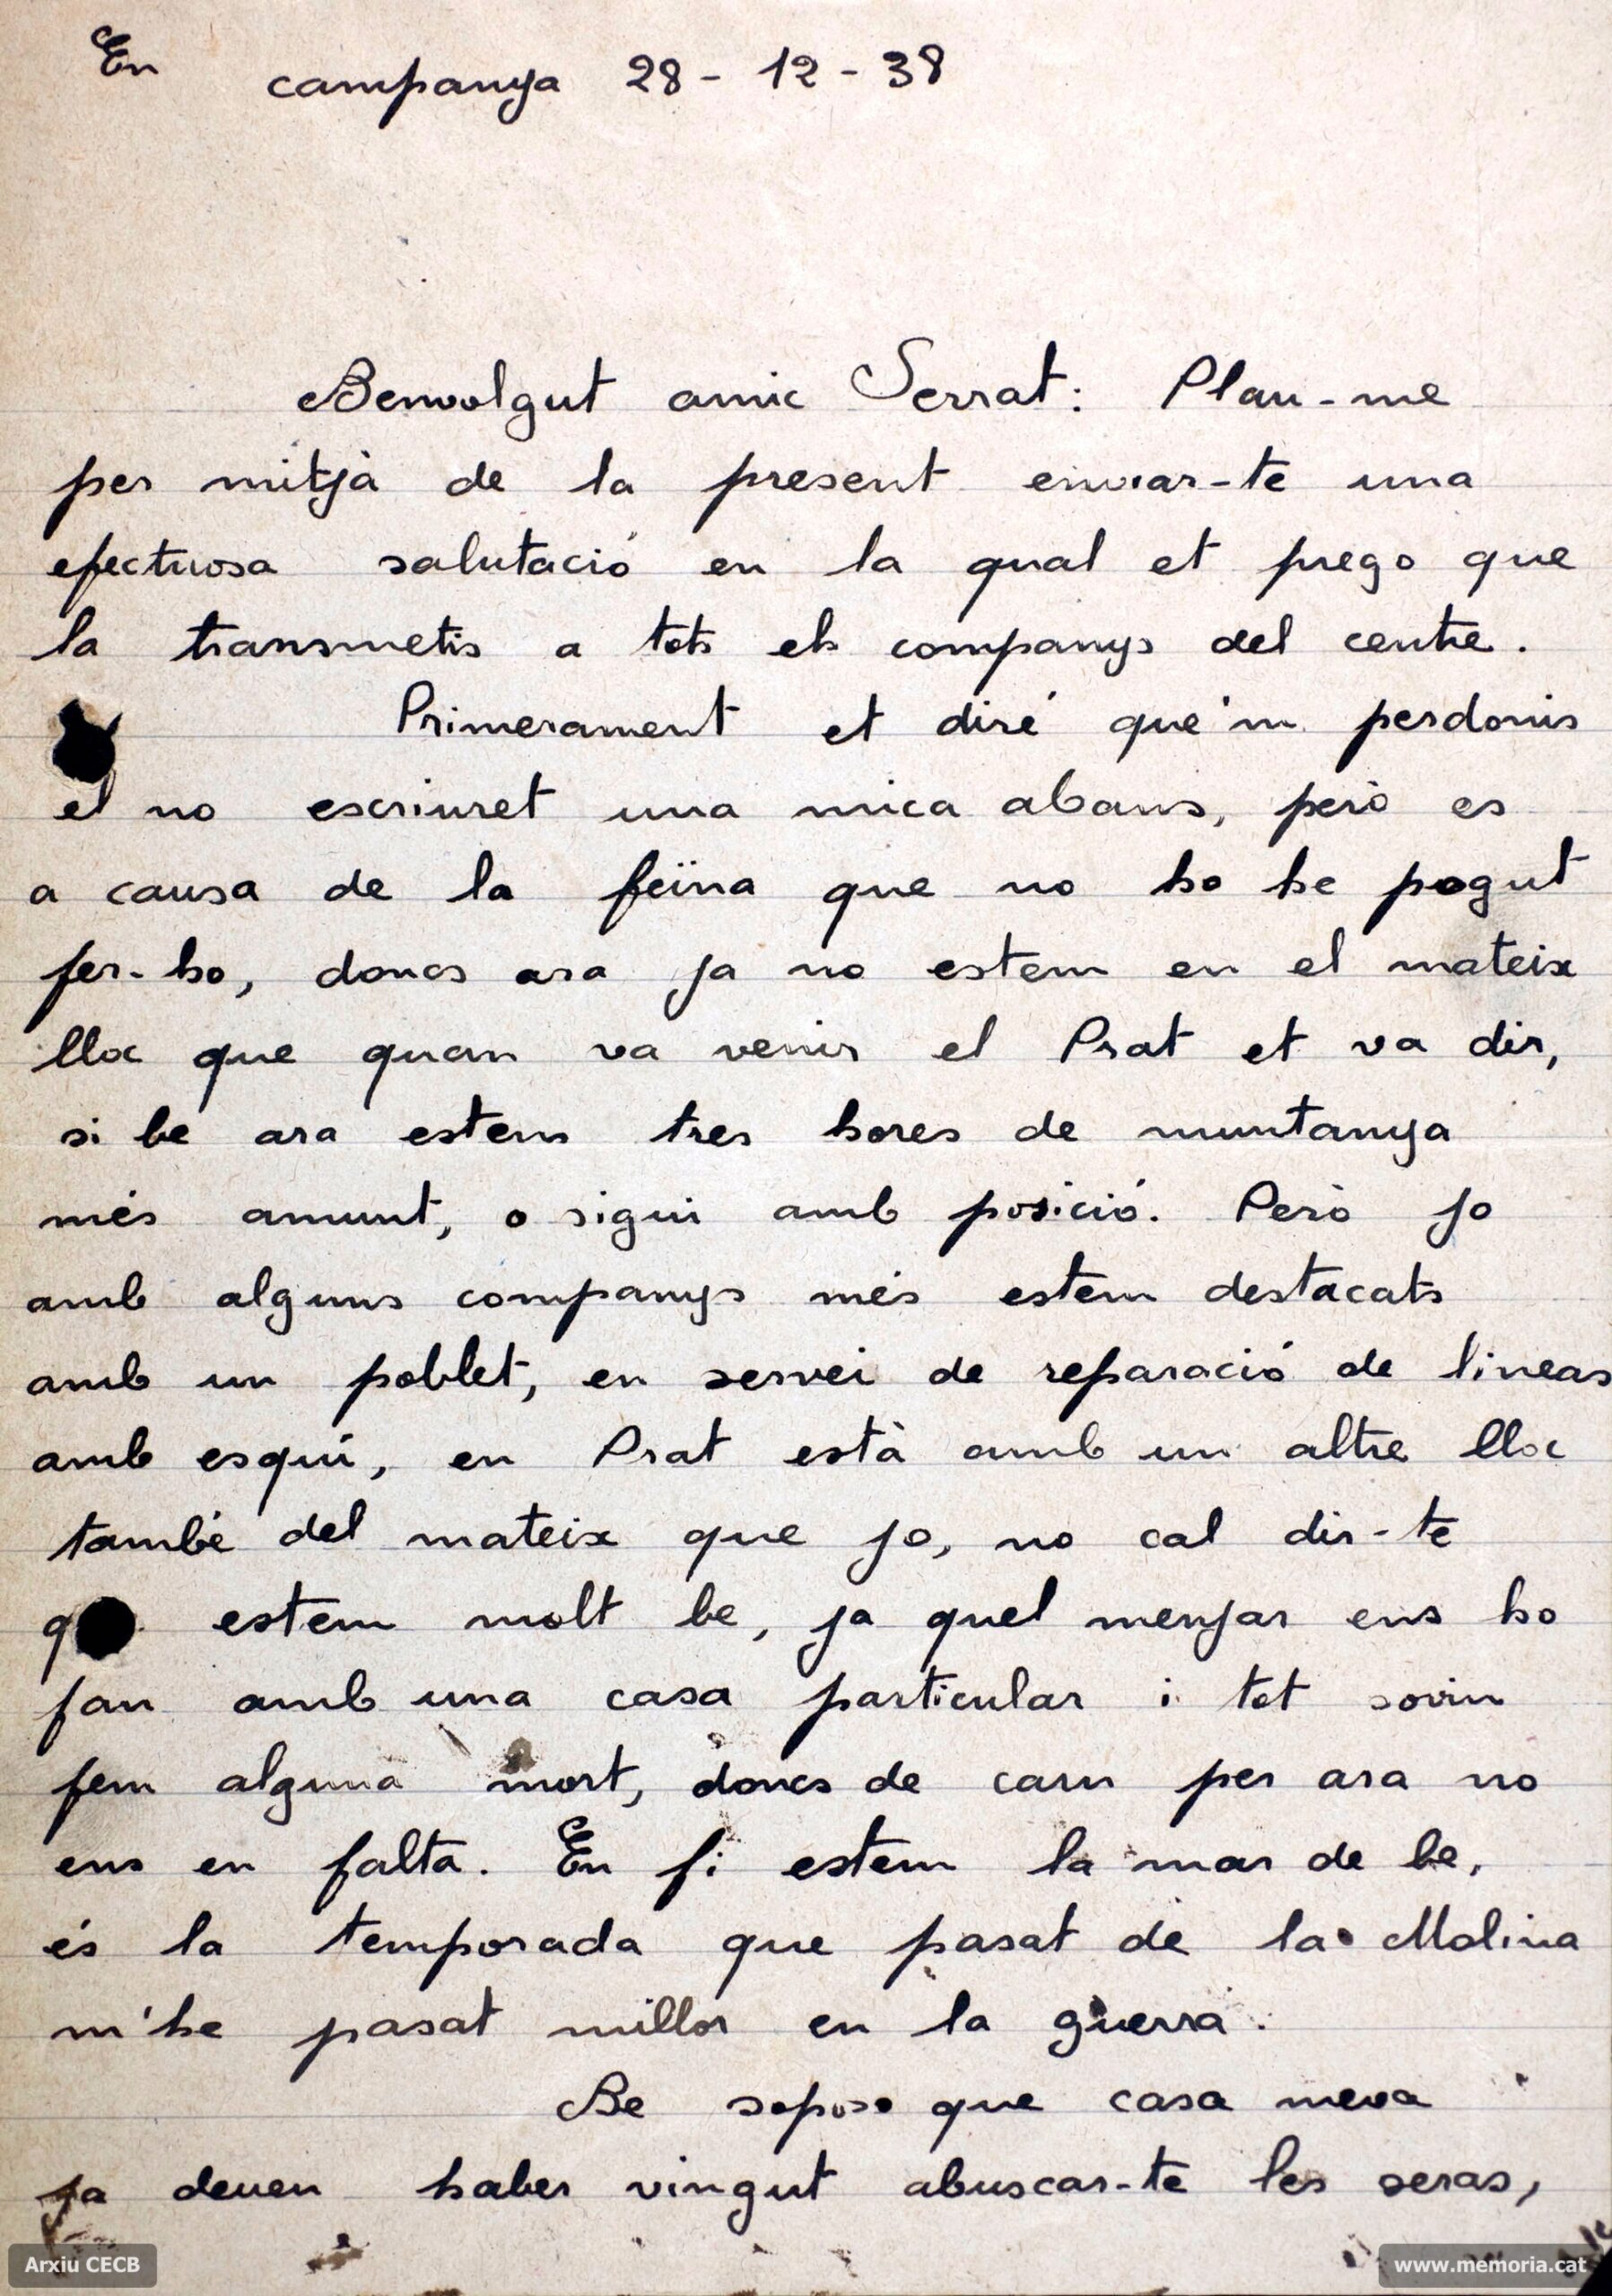 En campanya 28 - 12 - 38
Benvolgut amic Serrat: Plau-me
per mitjà de la present enviar-te una
efectuosa salutació en la qual et prego que
la transmetis a tots els companys del centre.
Primerament et diré que'm perdonis
el no escriuret una mica abans, però es
a causa de la feïna que no ho he pogut
fer-ho, doncs ara ja no estem en el mateix
lloc que quan va venir el Prat et va dir,
si be ara estem tres hores de muntanya
més amunt, o sigui amb posició. Però jo
amb alguns companys més estem destacats
amb un poblet, en servei de reparació de lineas
amb esquí, en Prat està amb un altre lloc
també del mateix que jo, no cal dir-te
estem molt be, ja quel menjar ens ho
fan amb una casa particular i tot sovin
fem alguna mort, doncs de carn per ara no
ens en falta. En fi estem la mar de be,
és la temporada que pasat de la Molina
m'he pasat millor en la guerra.
Be soposo que casa meva
ja deuen haber vingut abuscar-te les seras,
Arxiu CECB
www.memoria.cat